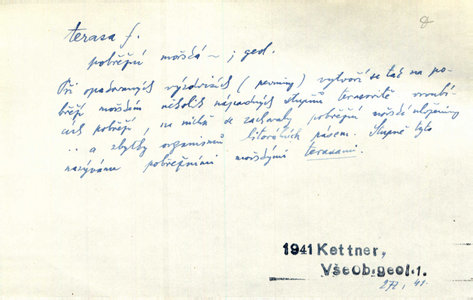 terasa f.
pobřežní mořská ~ ; geol.
Při opakovaných výzdvizích (pevniny) vytvoří se tak na po-
břeží mořském několik nápadných stupňů terasovitě vroubí-
cích pobřeží, na nichž se zachovaly pobřežní mořské uloženiny
.. a zbytky organismů litorálních pásem. Stupně tyto
nazýváme pobřežními mořskými terasami.
1941 Kettner,
VšeOb.geol.1.
272, 41.